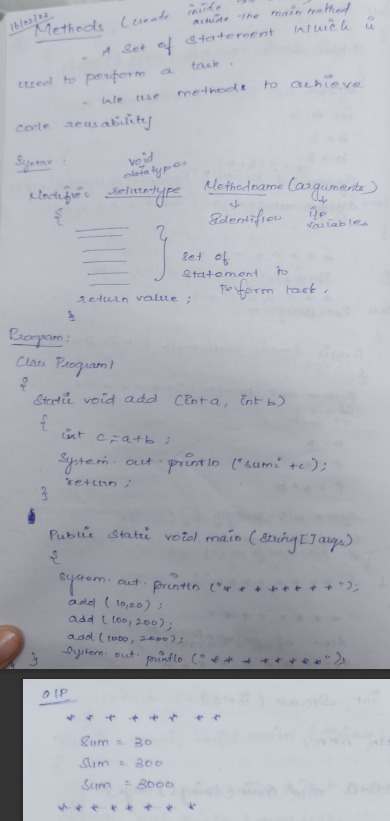 16/03/22
Methods (create inside the
outside the main method
- A set of statement which is
used to perform a task.
- We use methods to achieve
code reusability
Syntax :
void
datatypes
Modifier returntype Methodname (arguments)
{
Identifier
i/p
variables
set of
statement to
perform task.
return value ;
}
Program:
Class Program1
{
Static void add (int a, int b)
{
int c = a+b ;
System. out. println ("sum" +c);
return ;
}
Public static void main (String[] args)
{
System. out. println ("* * * * * * * *");
add (10,20) ;
add (100, 200);
add (1000, 2000);
System. out. println ("* * * * * * * *");
}
O/P
* * * * * * * *
Sum = 30
Sum = 300
Sum = 3000
* * * * * * * *